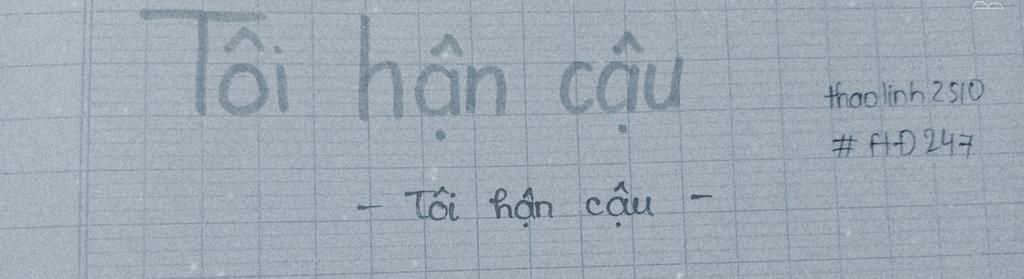 Tôi hận cậu
thaolinh2510
# AD247
- Tôi hận cậu -